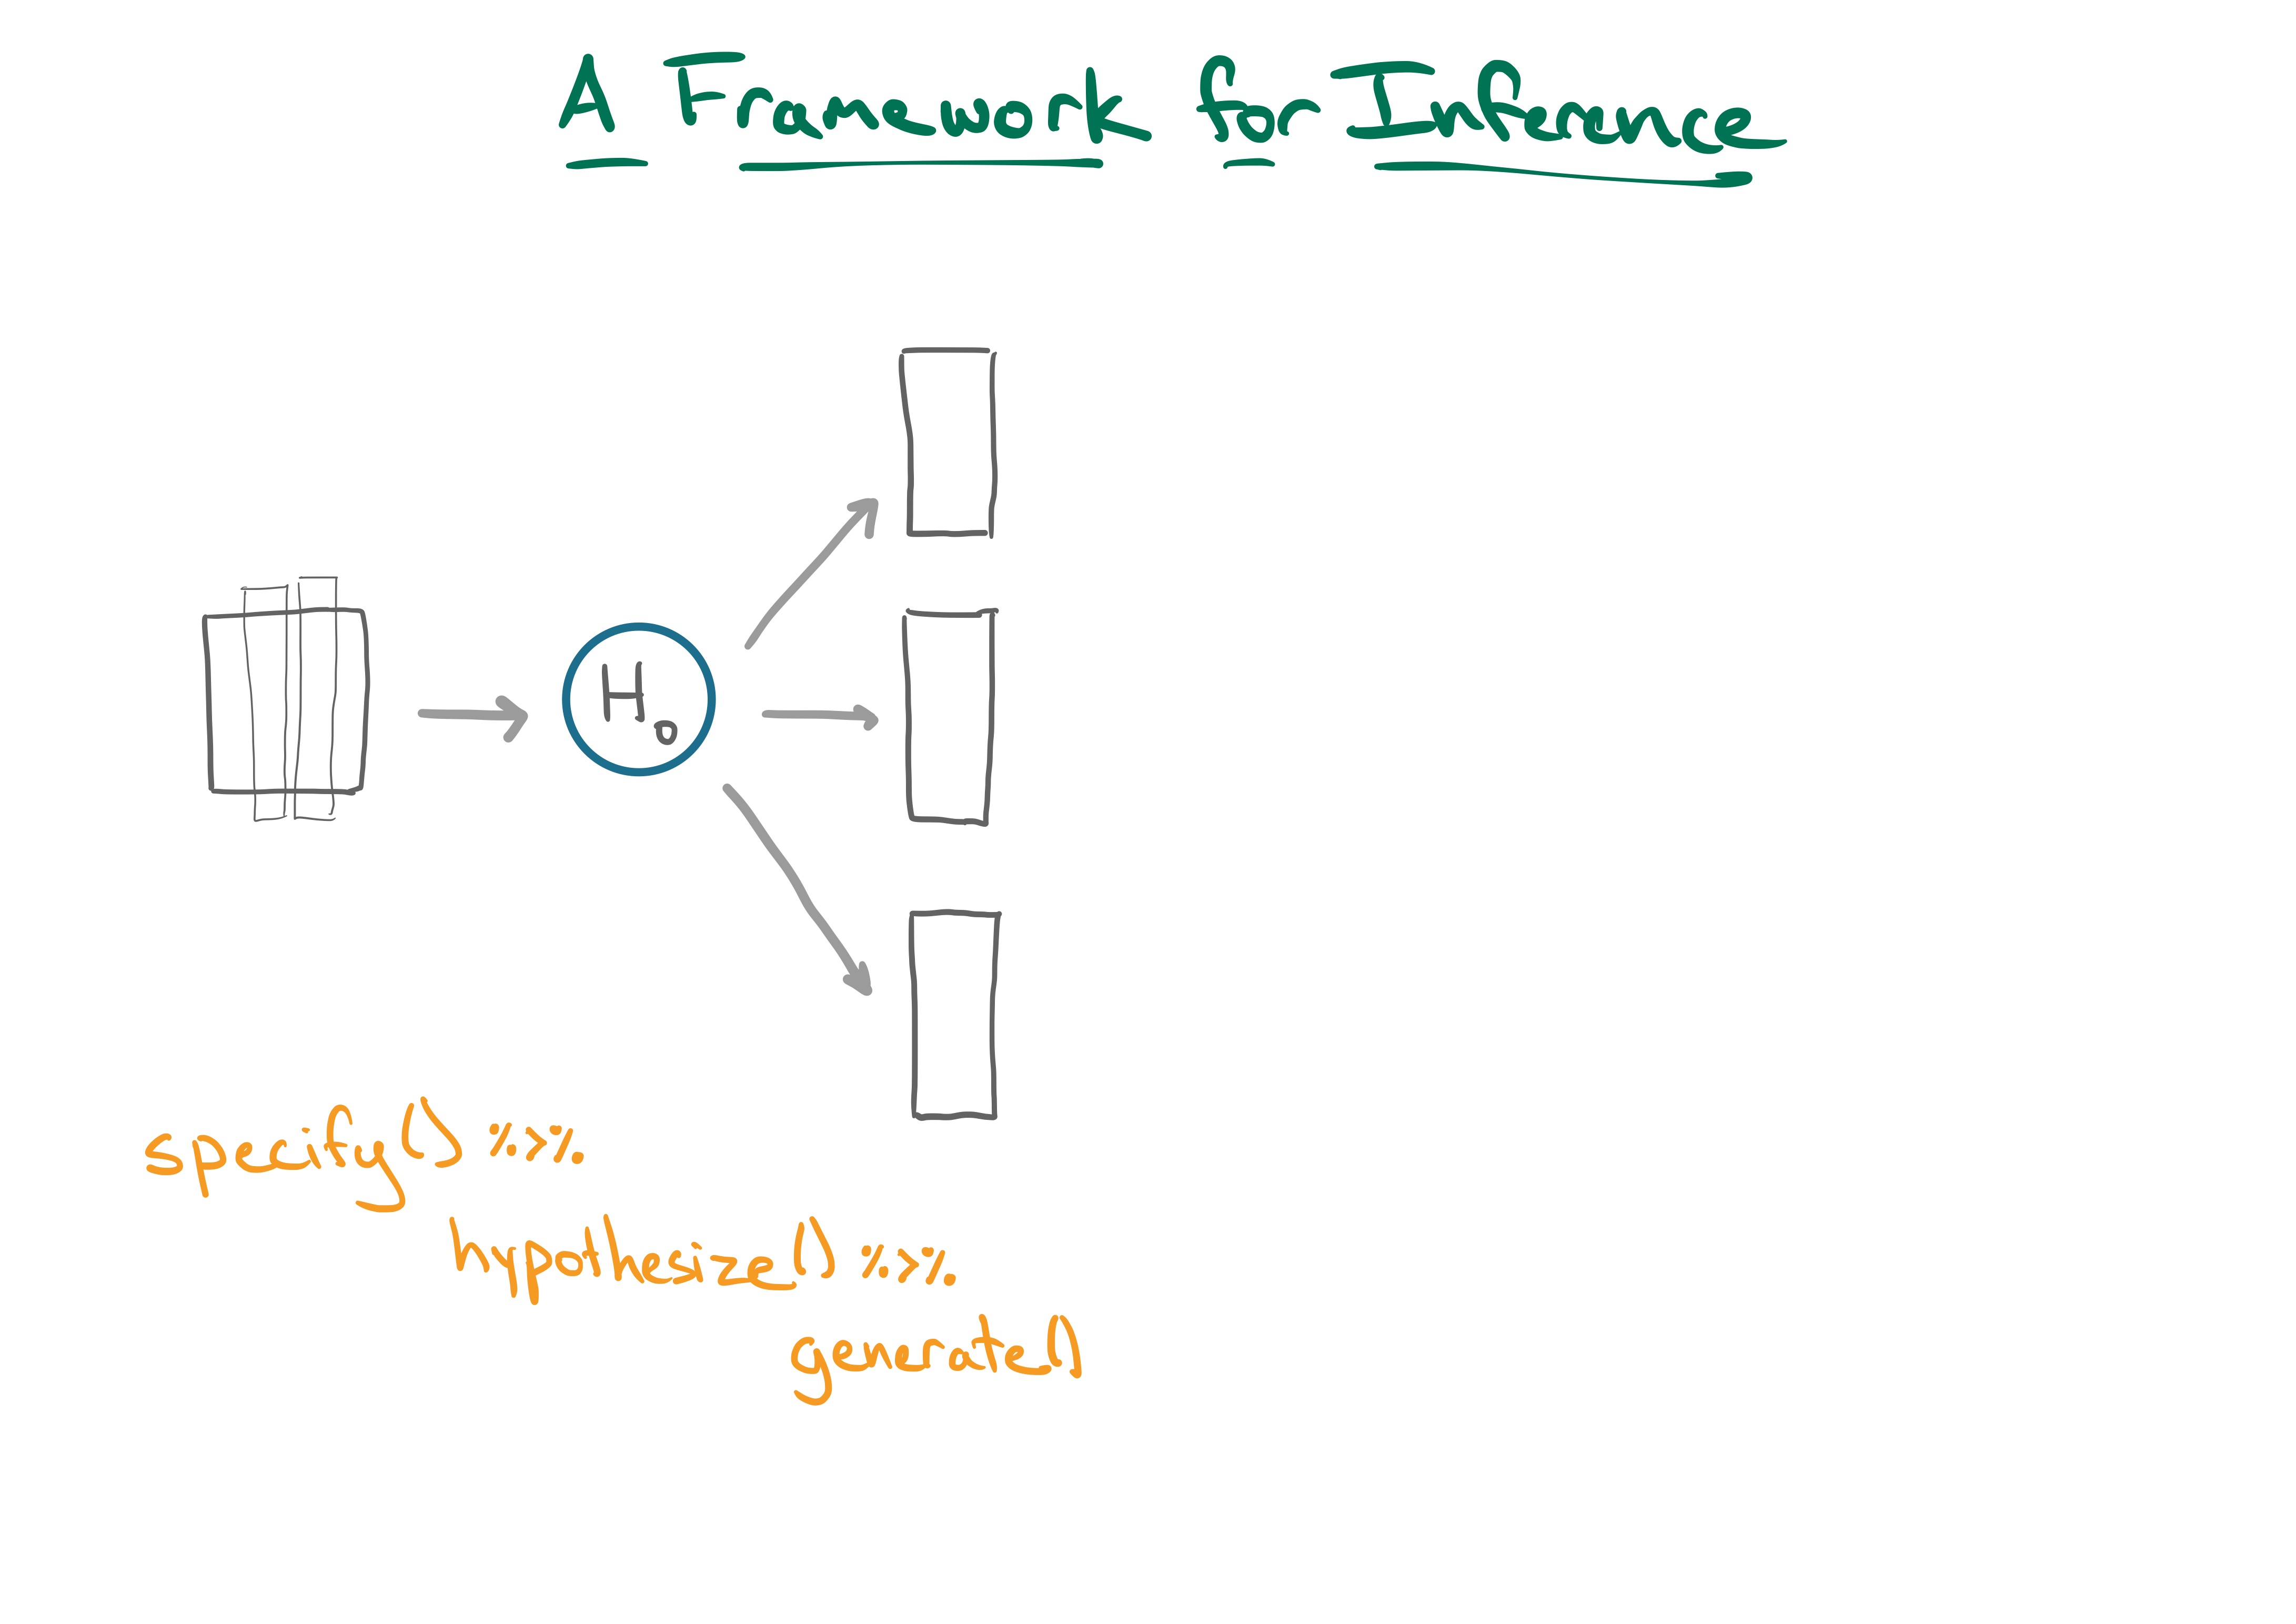 A Framework for Inference
H0
specify() %>%
hypothesize() %>%
generate()